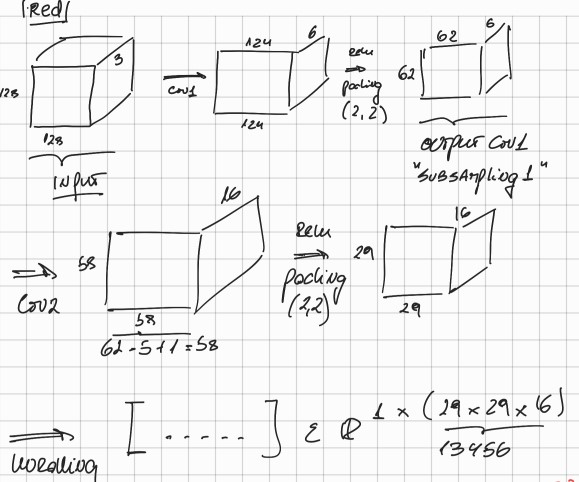 [Red]
3
128
128
INPUT
Conv1
124
124
6
Relu
pooling
(2,2)
62
62
6
OUTPUT Conv1
"SUBSAMPLING 1"
Conv2
58
58
16
62 - 5 + 1 = 58
Relu
pooling
(2,2)
29
29
16
[ ..... ] ∈ ℝ 1 × (29 × 29 × 16)
13456